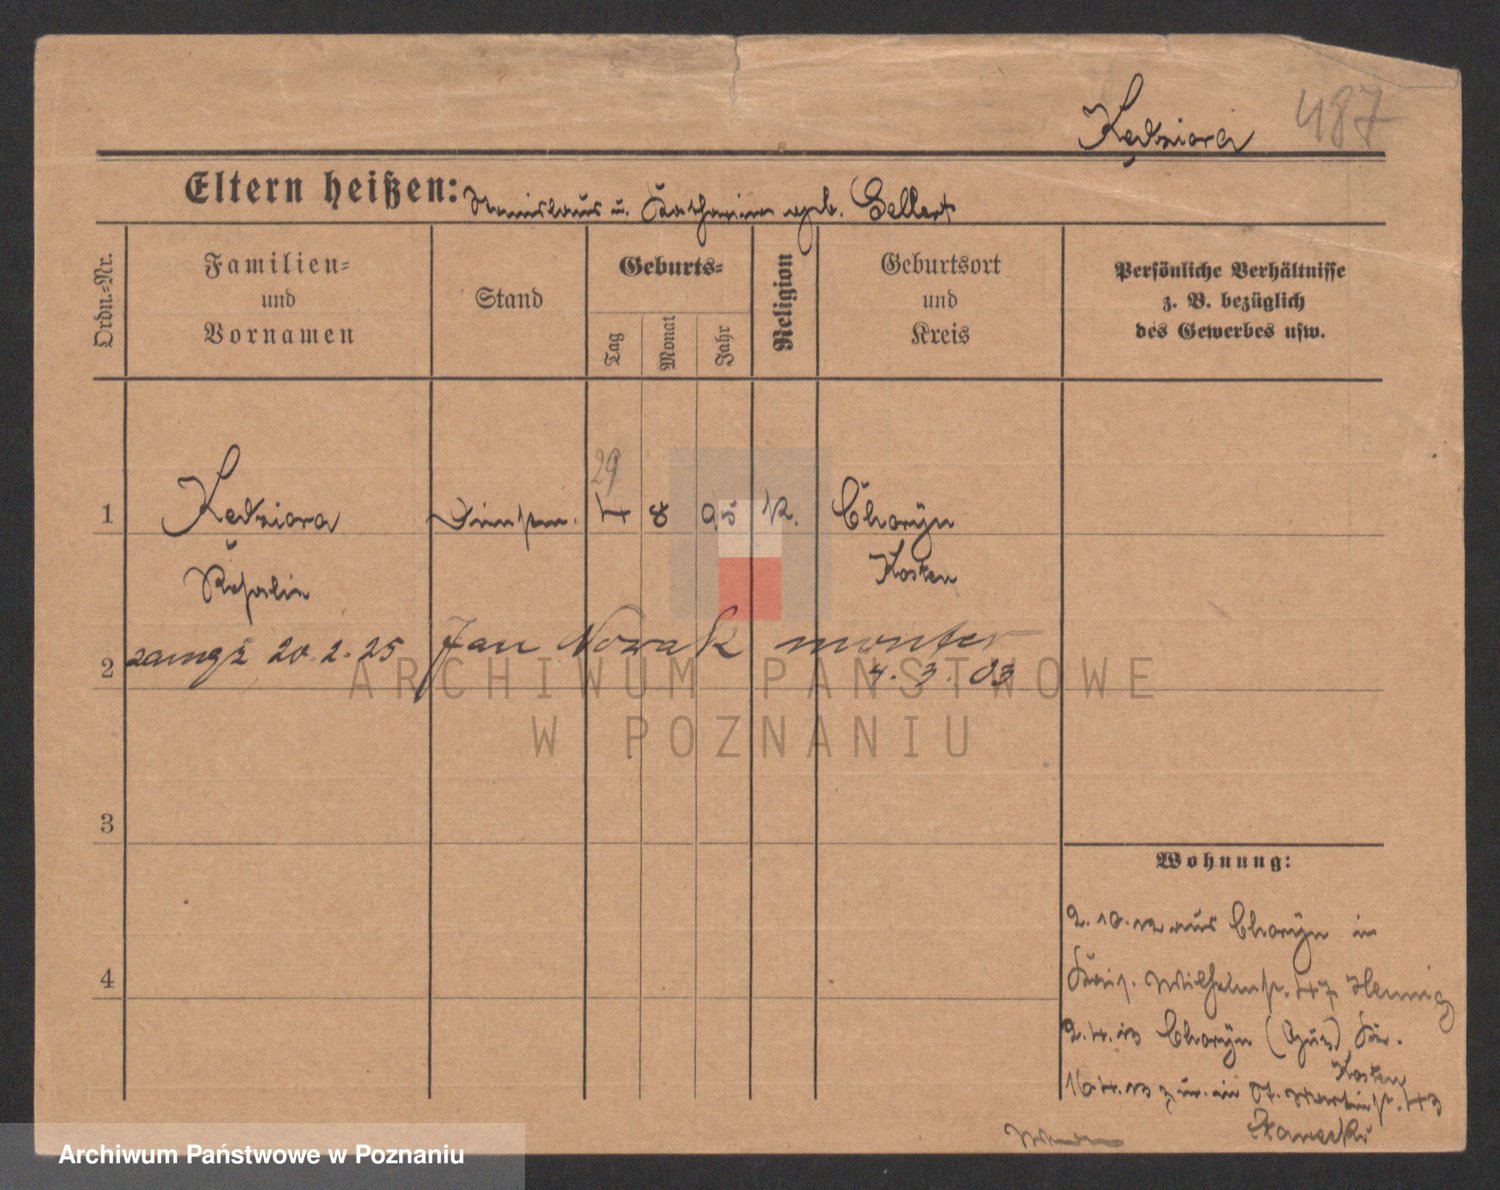 487
Kędziora
Eltern heißen: Stanislaus u. Katharina geb. Gellert
Ordn.-Nr.
Familien-
und
Vornamen
Stand
Geburts-
Tag
Monat
Jahr
Religion
Geburtsort
und
Kreis
Persönliche Verhältnisse
z. B. bezüglich
des Gewerbes usw.
29
1 Kędziora 4 8 95 k. Choryn
Rosalie Kosten
zamęż 20.2.25 Jan Nowak monter
2 4.3.03
3
4
Wohnung:
2.10.12 aus Choryn in
Kais. Wilhelmstr. 47 Hennig
2.4.13 Choryn Kr.
Kosten
16.4.13 St. Martinstr. 43
ARCHIWUM PAŃSTWOWE
W POZNANIU
Archiwum Państwowe w Poznaniu